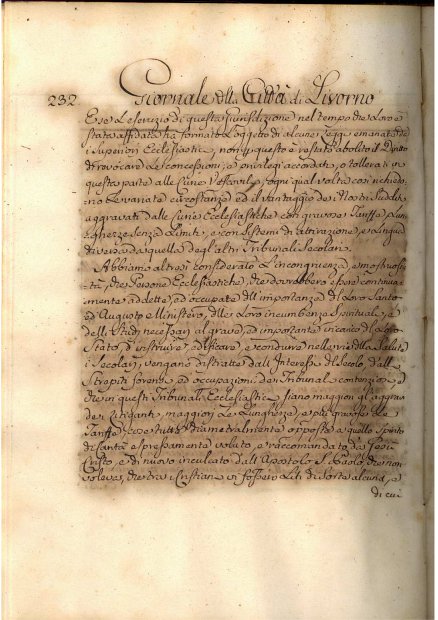 232. Giornale della Città di Livorno
E se L'esercizio di questa Giurisdizione nel tempo che Loro è
stata affidata ha formato L'oggetto di alcune Leggi emanate da
i Superiori Ecclesiastici, non p questo è restato abolito il Diritto
di revocare Le concessioni, e privilegi accordati, o tollerati in
questa parte alle Curie Vescovili, ogni qual volta così richiedo
no Le variate circostanze ed il vantaggio dei Nostri Sudditi
aggravati dalle Curie Ecclesiastiche con gravose Tariffe, p Lun
ghezze senza Limite, e con sistemi di attitazione, e o Lingua
diversa da quello degl'altri Tribunali Secolari.
Abbiamo altresì considerato L'incongruenza, e mostruosi
tà, che Persone Ecclesiastiche, che dovrebbero essere continua
mente addette, ed occupate all'importanza di Loro Santo
ed Augusto Ministero, alle Loro incumbenze Spirituali, e
delli Studj necessarj al grave, ed importante incarico di Loro
Stato, d'istruire, edificare, e condurre nelle vie della Salute
i Secolari, vengano distratte dall'Interesse di Secolo, dalli
Strepiti forensi, ed occupazioni de Tribunal contenzioso, e
che in questi Tribunali Ecclesiastici siano maggiori gl'aggravj
dei Litiganti, maggiori Le Lunghezze, e più gravose Le
Tariffe, cose tutte diametralmente opposte a quello Spirito
di Carità espressamente voluto, e raccomandato da Gesù
Cristo, e di nuovo inculcato dall'Apostolo S. Paolo, che non
voleva, che tra i Cristiani vi fossero Liti di sorte alcuna, e
di cui